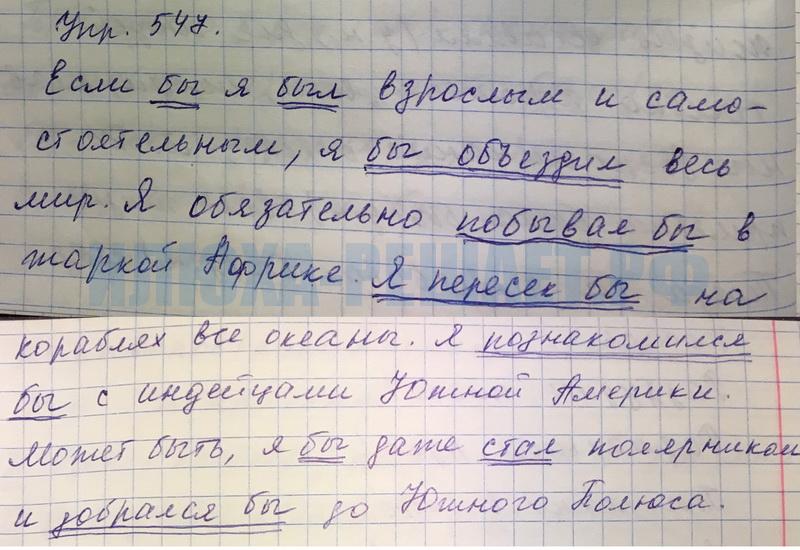 Упр. 547.
Если бы я был взрослым и само-
стоятельным, я бы объездил весь
мир. Я обязательно побывал бы в
жаркой Африке. Я пересек бы на
ИЛЮХА-РЕШАЕТ.РФ
кораблях все океаны. Я познакомился
бы с индейцами Южной Америки.
Может быть, я бы даже стал полярником
и добрался бы до Южного Полюса.